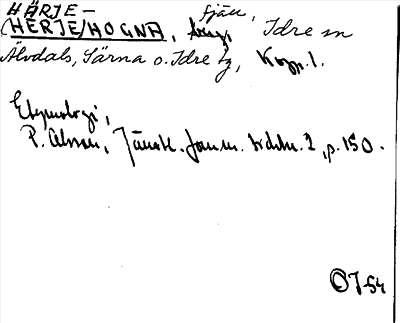 HÄRJE-
(HERJE/HOGNA, fjäll, Idre sn
Älvdals, Särna o. Idre tg, Kopp. l.
Etymologi,
P. Olsson, Jämtl. fornm. tidskr. 2, p. 150.
OJ-54